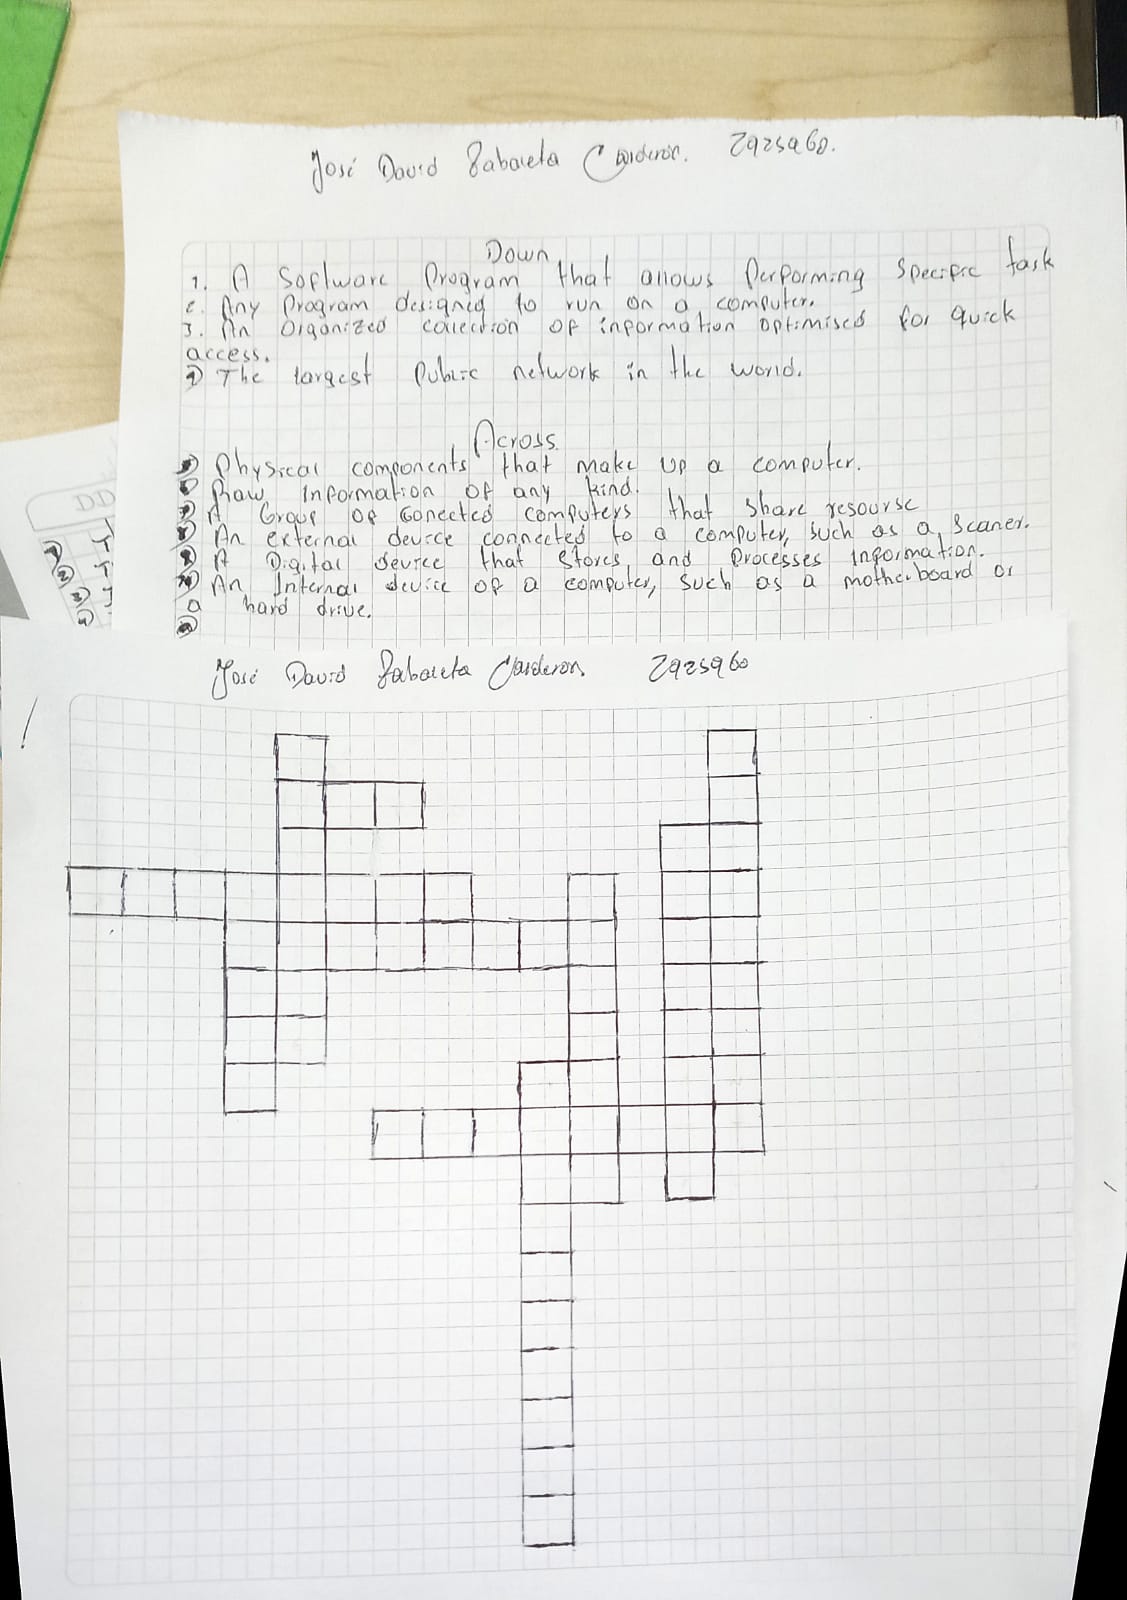 José David Zabaleta Calderon. 2925960.
Down
1. A Software Program that allows Performing Specific task
2. Any Program designed to run on a computer.
3. An Organized colection of information optimised for quick
access.
The largest Public network in the world.
Across
Physical components that make up a computer.
Raw Information of any kind.
A Group of Conected computers that share resourse
An external device connected to a computer, such as a scaner.
A Digital device that stores and Processes Information.
An Internal device of a computer, such as a motherboard or
a hard drive.
José David Zabaleta Calderon. 2925960